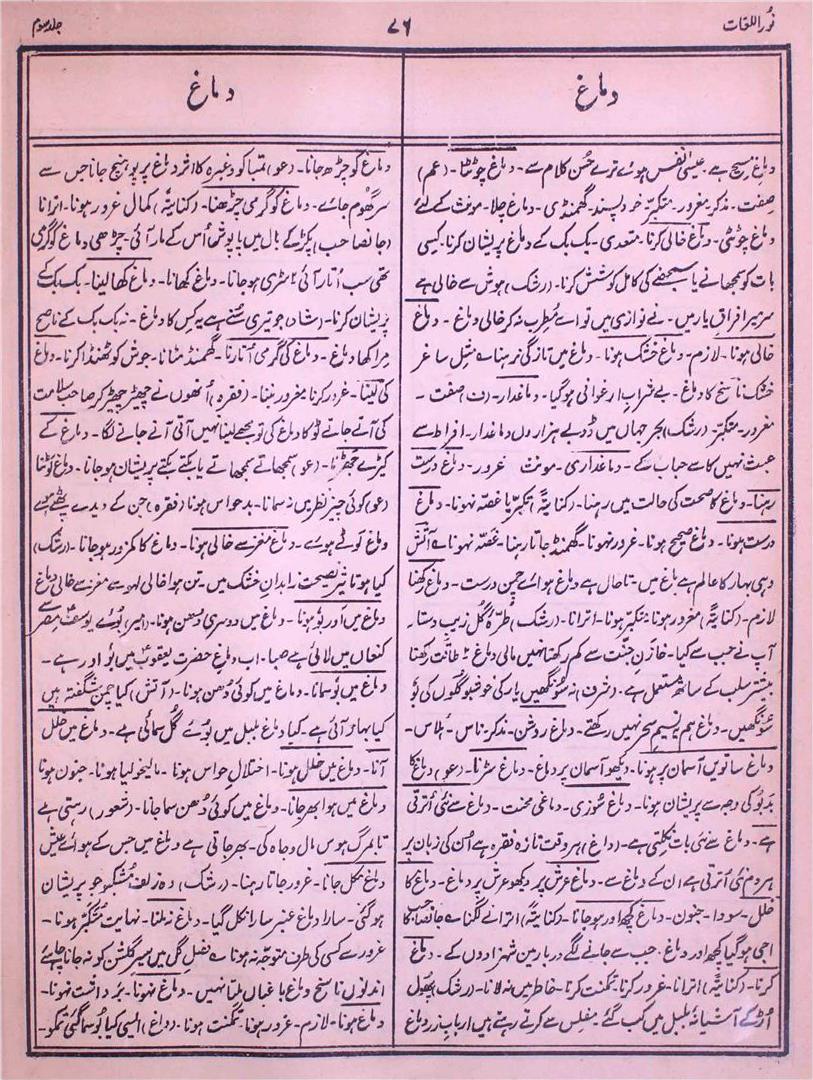 نُور اللغات
۷۶
جلد سوم
دماغ
دماغ
دماغ مسیح ہے۔ عیسیٰ نفس ہوئے ترے حُسن کلام سے۔ دماغ چوٹٹا۔ (عم)
صفت۔ مذکر۔ مغرور۔ متکبر۔ خود پسند۔ گھمنڈی۔ دماغ چلا۔ مونث کے لئے
دماغ چوٹٹی۔ دماغ خالی کرنا۔ متعدی۔ بک بک کے دماغ پریشان کرنا۔ کسی
بات کو سمجھانے یا سمجھنے کی کامل کوشش کرنا۔ (رشک) ہوش سے خالی ہے
سر میرا فراقِ یار میں۔ نے نوازی ہیں تو اے مُطرب نہ کر خالی دماغ۔ دماغ
خالی ہونا۔ لازم۔ دماغ خشک ہونا۔ دماغ میں تازگی نہ رہنا ے مثل ساغر
خشک ناسخ کا دماغ۔ بے شراب ارغوانی ہو گیا۔ دماغدار۔ (ف) صفت۔
مغرور۔ متکبر۔ (رشک) بحر جہاں میں ڈوبے ہزاروں دماغدار۔ افراط سے
عبث نہیں کاسے حباب کے۔ دماغداری۔ مونث۔ غرور۔ دماغ درست
رہنا۔ دماغ کا صحت کی حالت میں رہنا۔ (کنایۃً) تکبر یا غصّہ نہونا۔ دماغ
درست ہونا۔ دماغ صحیح ہونا۔ غرور نہونا۔ گھمنڈ جاتا رہنا۔ غصّہ نہونا ے آتش
وہی بہار کا عالم ہے باغ میں۔ تا حال ہے دماغ ہوائے چمن درست۔ دماغ رکھنا
لازم۔ (کنایۃً) مغرور ہونا۔ متکبر ہونا۔ اترانا۔ (رشک) طرّہ گل زیب دستار
آپ نے جب سے کیا۔ خازنِ جنّت سے کم رکھتا نہیں مالی دماغ ۲ طاقت رکھنا
بیشتر سلب کے ساتھ مستعمل ہے۔ (شرف) نہ سُونگھیں یار کی خوشبو گلوں کی بُو
سُونگھیں۔ دماغ ہم یہ نسیم سحر نہیں رکھتے۔ دماغ روشن۔ مذکر۔ ناس۔ ہلاس۔
دماغ ساتویں آسمان پر ہونا۔ دیکھو آسمان پر دماغ۔ دماغ سڑنا۔ (عو) دماغ کا
بدبُو کی وجہ سے پریشان ہونا۔ دماغ سُوزی۔ دماغی محنت۔ دماغ سے نئی اُترتی
ہے۔ دماغ سے نئی بات نکلتی ہے۔ (داغ) ہر وقت تازہ فقرہ ہے اُن کی زبان پر
ہر دم نئی اُترتی ہے ان کے دماغ سے۔ دماغ عرش پر۔ دیکھو عرش پر دماغ۔ دماغ کا
خلل۔ سودا۔ جنون۔ دماغ کچھ اور ہو جانا۔ (کنایۃً) اترانے لگنا ے جانصاحب
اجی ہو گیا کچھ اور دماغ۔ جب سے جانے لگے دربار میں شہزادوں کے۔ دماغ
کرنا۔ (کنایۃً) اترانا۔ غرور کرنا۔ تمکنت کرنا۔ خاطر میں نہ لانا۔ (رشک) پھُول
اُڑ کے آشیانۂ بلبل میں کب گئے۔ مفلس سے کرتے رہتے ہیں ارباب زر دماغ
دماغ کو چڑھ جانا۔ (عو) تمباکو وغیرہ کا اثر دماغ پر پہونچ جانا جس سے
سر گھُوم جائے۔ دماغ کو گرمی چڑھنا۔ (کنایۃً) کمال غرور ہونا۔ اترانا
(جانصاحب) پکڑ کے بال میں پاپوش اُس کے مار آئی۔ چڑھی دماغ کو گرمی
تھی سب اُتار آئی ۲ سٹری ہو جانا۔ دماغ کھانا۔ دماغ کھا لینا۔ بک بک کے
پریشان کرنا۔ (شاد) جو تیری سُنے ہے یہ کس کا دماغ۔ نہ بک بک کے ناصح
مرا کھا دماغ۔ دماغ کی گرمی اُتارنا۔ گھمنڈ مٹانا۔ جوش کو ٹھنڈا کرنا۔ دماغ
کی لینا۔ غرور کرنا۔ مغرور بننا۔ (فقرہ) اُنھوں نے چھیڑ چھیڑ کر صاحب سلامت
کی آتے جاتے ٹوکا دماغ کی تو مجھے لینا نہیں آتی آنے جانے لگا۔ دماغ کے
کیڑے جھڑنا۔ (عو) سمجھاتے سمجھاتے یا بکتے بکتے پریشان ہو جانا۔ دماغ لوٹنا
(عو) کوئی چیز نظر میں نہ سمانا۔ بدحواس ہونا (فقرہ) جن کے دیدے پھٹے ہوئے
دماغ لوٹے ہوئے۔ دماغ مغز سے خالی ہونا۔ دماغ کا کمزور ہو جانا۔ (رشک)
کیا ہو تاثیر نصیحت زاہدانِ خشک میں۔ تن ہوا خالی لہو سے مغز سے خالی دماغ
دماغ میں اَور بُو ہونا۔ دماغ میں دوسری دُھن ہونا۔ (امیر) بُوئے یوسفؑ مصر سے
کنعاں میں لائی ہے صبا۔ اب دماغِ حضرت یعقوبؑ میں بُو اور ہے۔
دماغ میں بُو سمانا۔ دماغ میں کوئی دُھن ہونا۔ (آتش) کیا چمن شگفتہ ہیں
کیا بہار آئی ہے۔ کیا دماغ بلبل میں بُوئے گل سمائی ہے۔ دماغ میں خلل
آنا۔ دماغ میں خلل ہونا۔ اختلالِ حواس ہونا۔ مالیخولیا ہونا۔ جنون ہونا
دماغ میں ہوا بھر جانا۔ دماغ میں کوئی دُھن سما جانا۔ (شعور) رہتی ہے
تا بمرگ ہوس مال و جاہ کی۔ بھر جاتی ہے دماغ میں جس کے ہوائے عیش
دماغ نکل جانا۔ غرور جاتا رہنا۔ (رشک) وہ زلف مُشکبو جو پریشان
ہو گئی۔ سارا دماغ عنبر سارا نکل گیا۔ دماغ نہ ملنا۔ نہایت متکبر ہونا۔
غرور سے کسی کی طرف متوجہ نہ ہونا ے فصلِ گل میں سیر گلشن کو نہ جانا چاہئے
اندنوں ناسخ دماغ باغباں ملتا نہیں۔ دماغ نہونا۔ برداشت نہونا۔
دماغ ہونا۔ لازم۔ غرور ہونا۔ تمکنت ہونا۔ (داغ) ایسی کیا بُو سما گئی تمکو۔